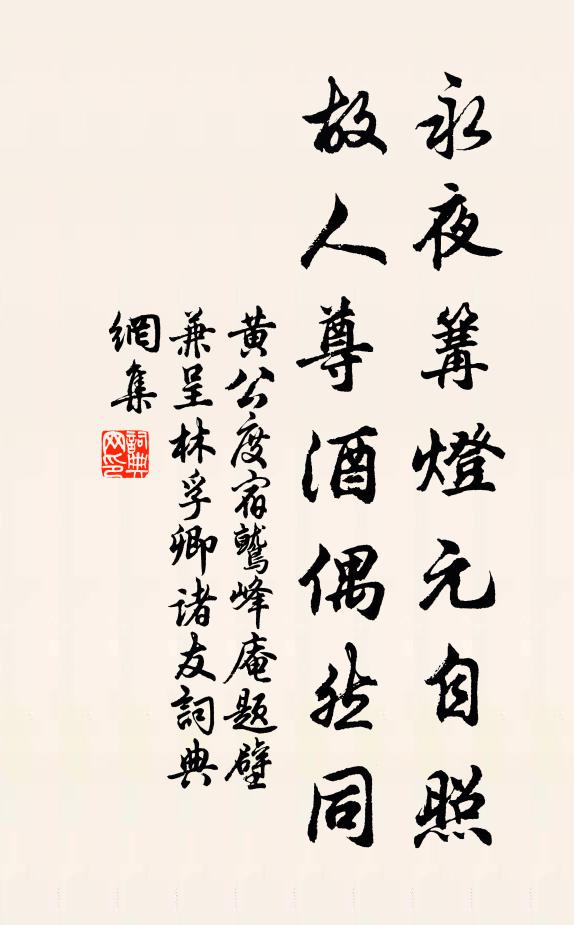 永夜篝燈元自照
故人尊酒偶然同
黄公度宿鷲峰庵題壁
兼呈林孚卿诸友詞典
網集
詞典
网印